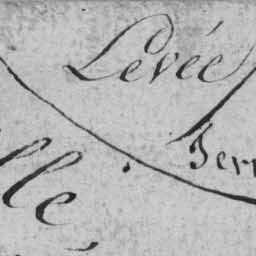 Levée
Terr
llé